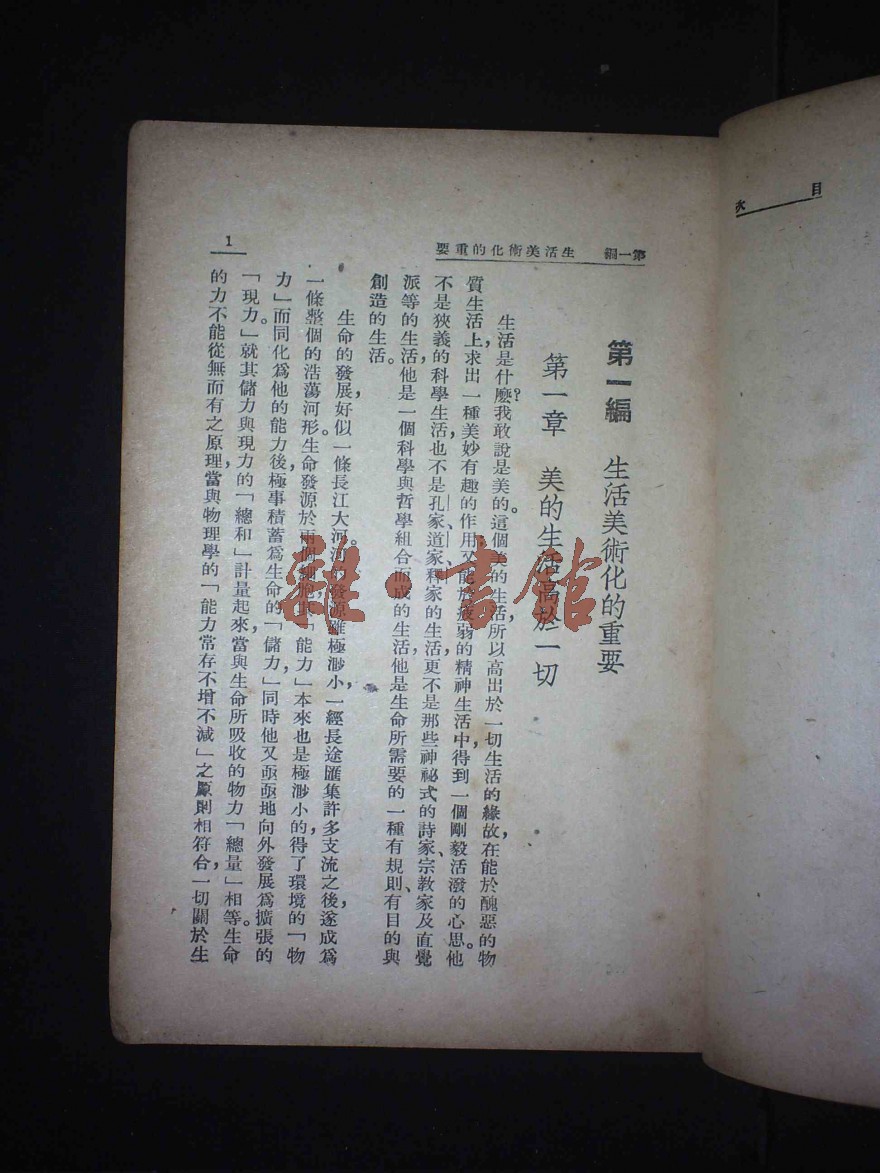 目次
第一編 生活美術化的重要
1
第一編 生活美術化的重要
第一章 美的生活高於一切
生活是什麼？我敢說是美的。這個美的生活所以高出於一切生活的緣故，在能於醜惡的物
質生活上，求出一種美妙有趣的作用；又能於疲弱的精神生活中，得到一個剛毅活潑的心思。他
不是狹義的科學生活，也不是孔家、道家、釋家的生活，更不是那些神祕式的詩家、宗教家及直覺
派等的生活，他是一個科學與哲學組合而成的生活，他是生命所需要的一種有規則、有目的與
創造的生活。
生命的發展，好似一條長江大河。河的發源雖極渺小，一經長途匯集許多支流之後，遂成為
一條整個的浩蕩河形。生命發源於兩個細胞，其「能力」本來也是極渺小的，得了環境的「物
力」而同化為他的能力後，極事積蓄為生命的「儲力」，同時他又亟亟地向外發展為擴張的
「現力」。就其儲力與現力的「總和」計量起來，當與生命所吸收的物力「總量」相等。生命
的力不能從無而有之原理，當與物理學的「能力常存不增不減」之原則相符合，一切關於生
雜·書館